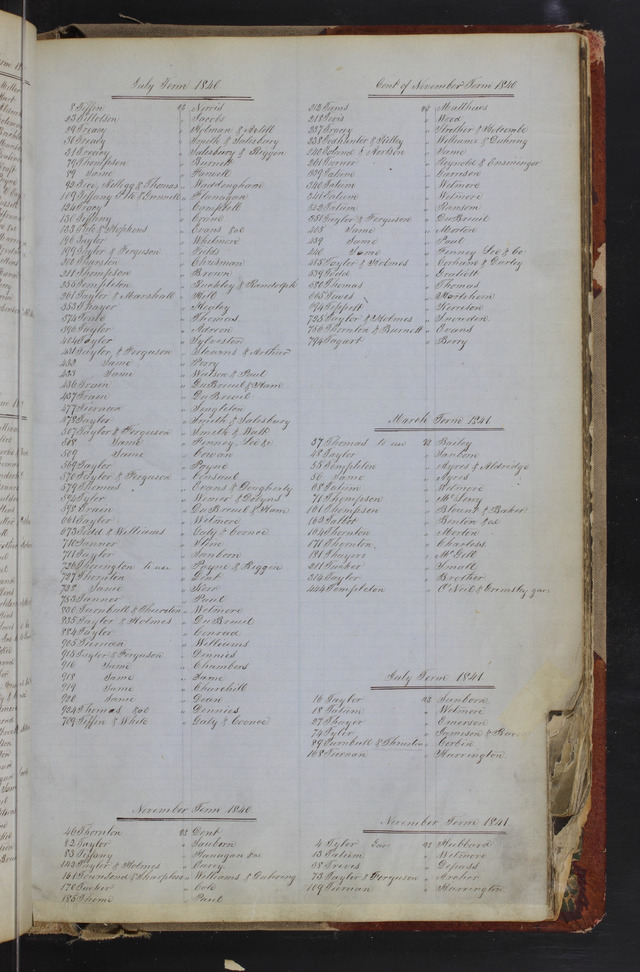 July Term 1840
8 Tiffin vs Norris
23 Tillotson " Jacobs
29 Treacy " Holman &
36 Treaty " Smith & Salisbury
51 Tracy " Salisbury & Biggen
72 Thompson " Burnett
89 Same " Howell
95 Tevis, Kellogg & Thomas " Waddingham
109 Tiffany " Flanagan
126 Tracy " Campbell
130 Tiffany " Crane
133 Tate & Hopkins " Evans &al
196 Taylor " Whitmore
199 Taylor & Ferguson " Fields
Chisman
211 Thompson " Brown
255 Templeton " Buckley & Randolph
301 Taylor & Marshall " Hill
353 Thayer " Henley
374 Tente " Thomas
396 Taylor
404 Taylor " Sylvester
431 Taylor & Ferguson " Stearns & Arthur
432 Same " Perry
433 Same " Watson & Paul
436 Truen " DuBreuil & Ham
437 Truen " DuBreuil
477 Tiernan " Singleton
478 Taylor " Smith & Salisbury
507 Taylor & Ferguson " Smith & Wath
508 Same " Finney, Lee &c
509 Same " Cowan
569 Taylor " Payne
570 Taylor & Ferguson " Consaul
579 Thomas " Evans & Dougherty
592 Tyler " Wimer &
593 Truen " DuBreuil & Ham
661 Taylor " Wetmore
673 Todd & Williams " Caty & Coonce
710 Tannor " Kline
711 Taylor " Sanborn
726 Thorington to use " Payne & Biggin
727 Thornton " Dent
728 Same " Kerr
753 Tanner " Paul
806 Turnbull & Thurston " Wetmore
835 Taylor & Holmes " DuBreuil
884 Taylor " Conrad
905 Tiernan " Williams
915 Taylor & Ferguson " Dennies
916 Same " Chambers
918 Same " Same
919 Same " Churchill
920 Same " Dean
924 Thomas &al " Dennies
709 Tiffin & White " Caty & Coonce
November Term 1840
46 Thornton vs Dent
82 Taylor " Sanborn
83 Tiffany " Flanagan &al
143 Taylor & Holmes " Curry
161 Townsend & Sharpless " Williams & Duhring
170 Tucker " Cole
185 Thome " Paul
Cont of November Term 1840
212 vs Matthews
218 Tevis " Wood
227 Tracy " Strother & Holcombe
235 Todhunter & Kelley " Williams & Duhring
240 " Same
261 Turner " Reynold & Ensminger
339 Tatum " Garrison
340 Tatum " Wetmore
341 Tatum " Wetmore
352 Tatum " Ransom
381 Taylor & Ferguson " DuBreuil
Same " Morton
439 Same " Paul
440 Same " Finney Lee & Co
485 Taylor & Holmes " Cochane & Gurley
539 Todd
580 Thomas " Thomas
665 " Hartshorn
694 Tippett " Kerrison
725 Taylor & Holmes " Snowden
756 Thornton & Burnett " Evans
794 Tagart " Berry
March Term 1841
37 Thomas to use vs Bailey
48 Taylor " Sanborn
55 Templeton " Ayres & Aldredge
56 Same " Ayres
68 Tatum " Wetmore
71 Thompson
101 Thompson " Blount & Baker
163 Talbot " Benton &al
164 Thornton " Morton
171 Thornton " Charless
191 Thayer " McGill
211 Tinker " Small
314 Taylor " Brother
444 Templeton " O'Neil & Grimsley gar
July Term 1841
16 Taylor vs Sanborn
18 Tatum " Wetmore
27 Thayer " Emerson
74 Tyler " Jamison &
89 Turnbull & Thurston " Corbin
108 Tiernan " Harrington
November Term 1841
4 Tyler Gar vs Hubbard
13 Tatum " Wetmore
58 Treves " Depass
73 Taylor & Ferguson " Archer
109 Tiernan " Harrington